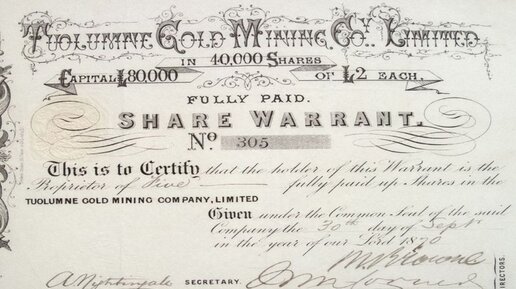 TUOLUMNE GOLD MINING COY. LIMITED
IN 40,000 SHARES
CAPITAL £80,000 OF £2 EACH,
FULLY PAID.
SHARE WARRANT.
No 305
This is to Certify that the holder of this Warrant is the
Proprietor of Five fully paid up Shares in the
TUOLUMNE GOLD MINING COMPANY, LIMITED
Given under the Common Seal of the said
Company the 30th day of Sept
in the year of our Lord 1870
A Nightingale SECRETARY.
DIRECTORS.